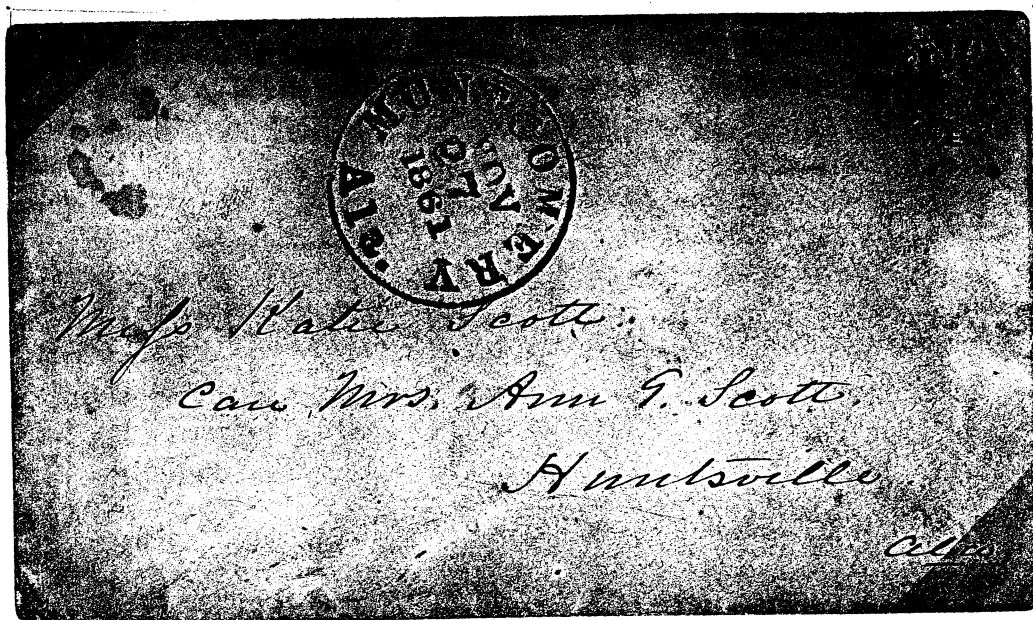 MONTGOMERY Ala.
NOV
27
1861
Miss Katie Scott.
Care Mrs. Ann G. Scott.
Huntsville
Ala